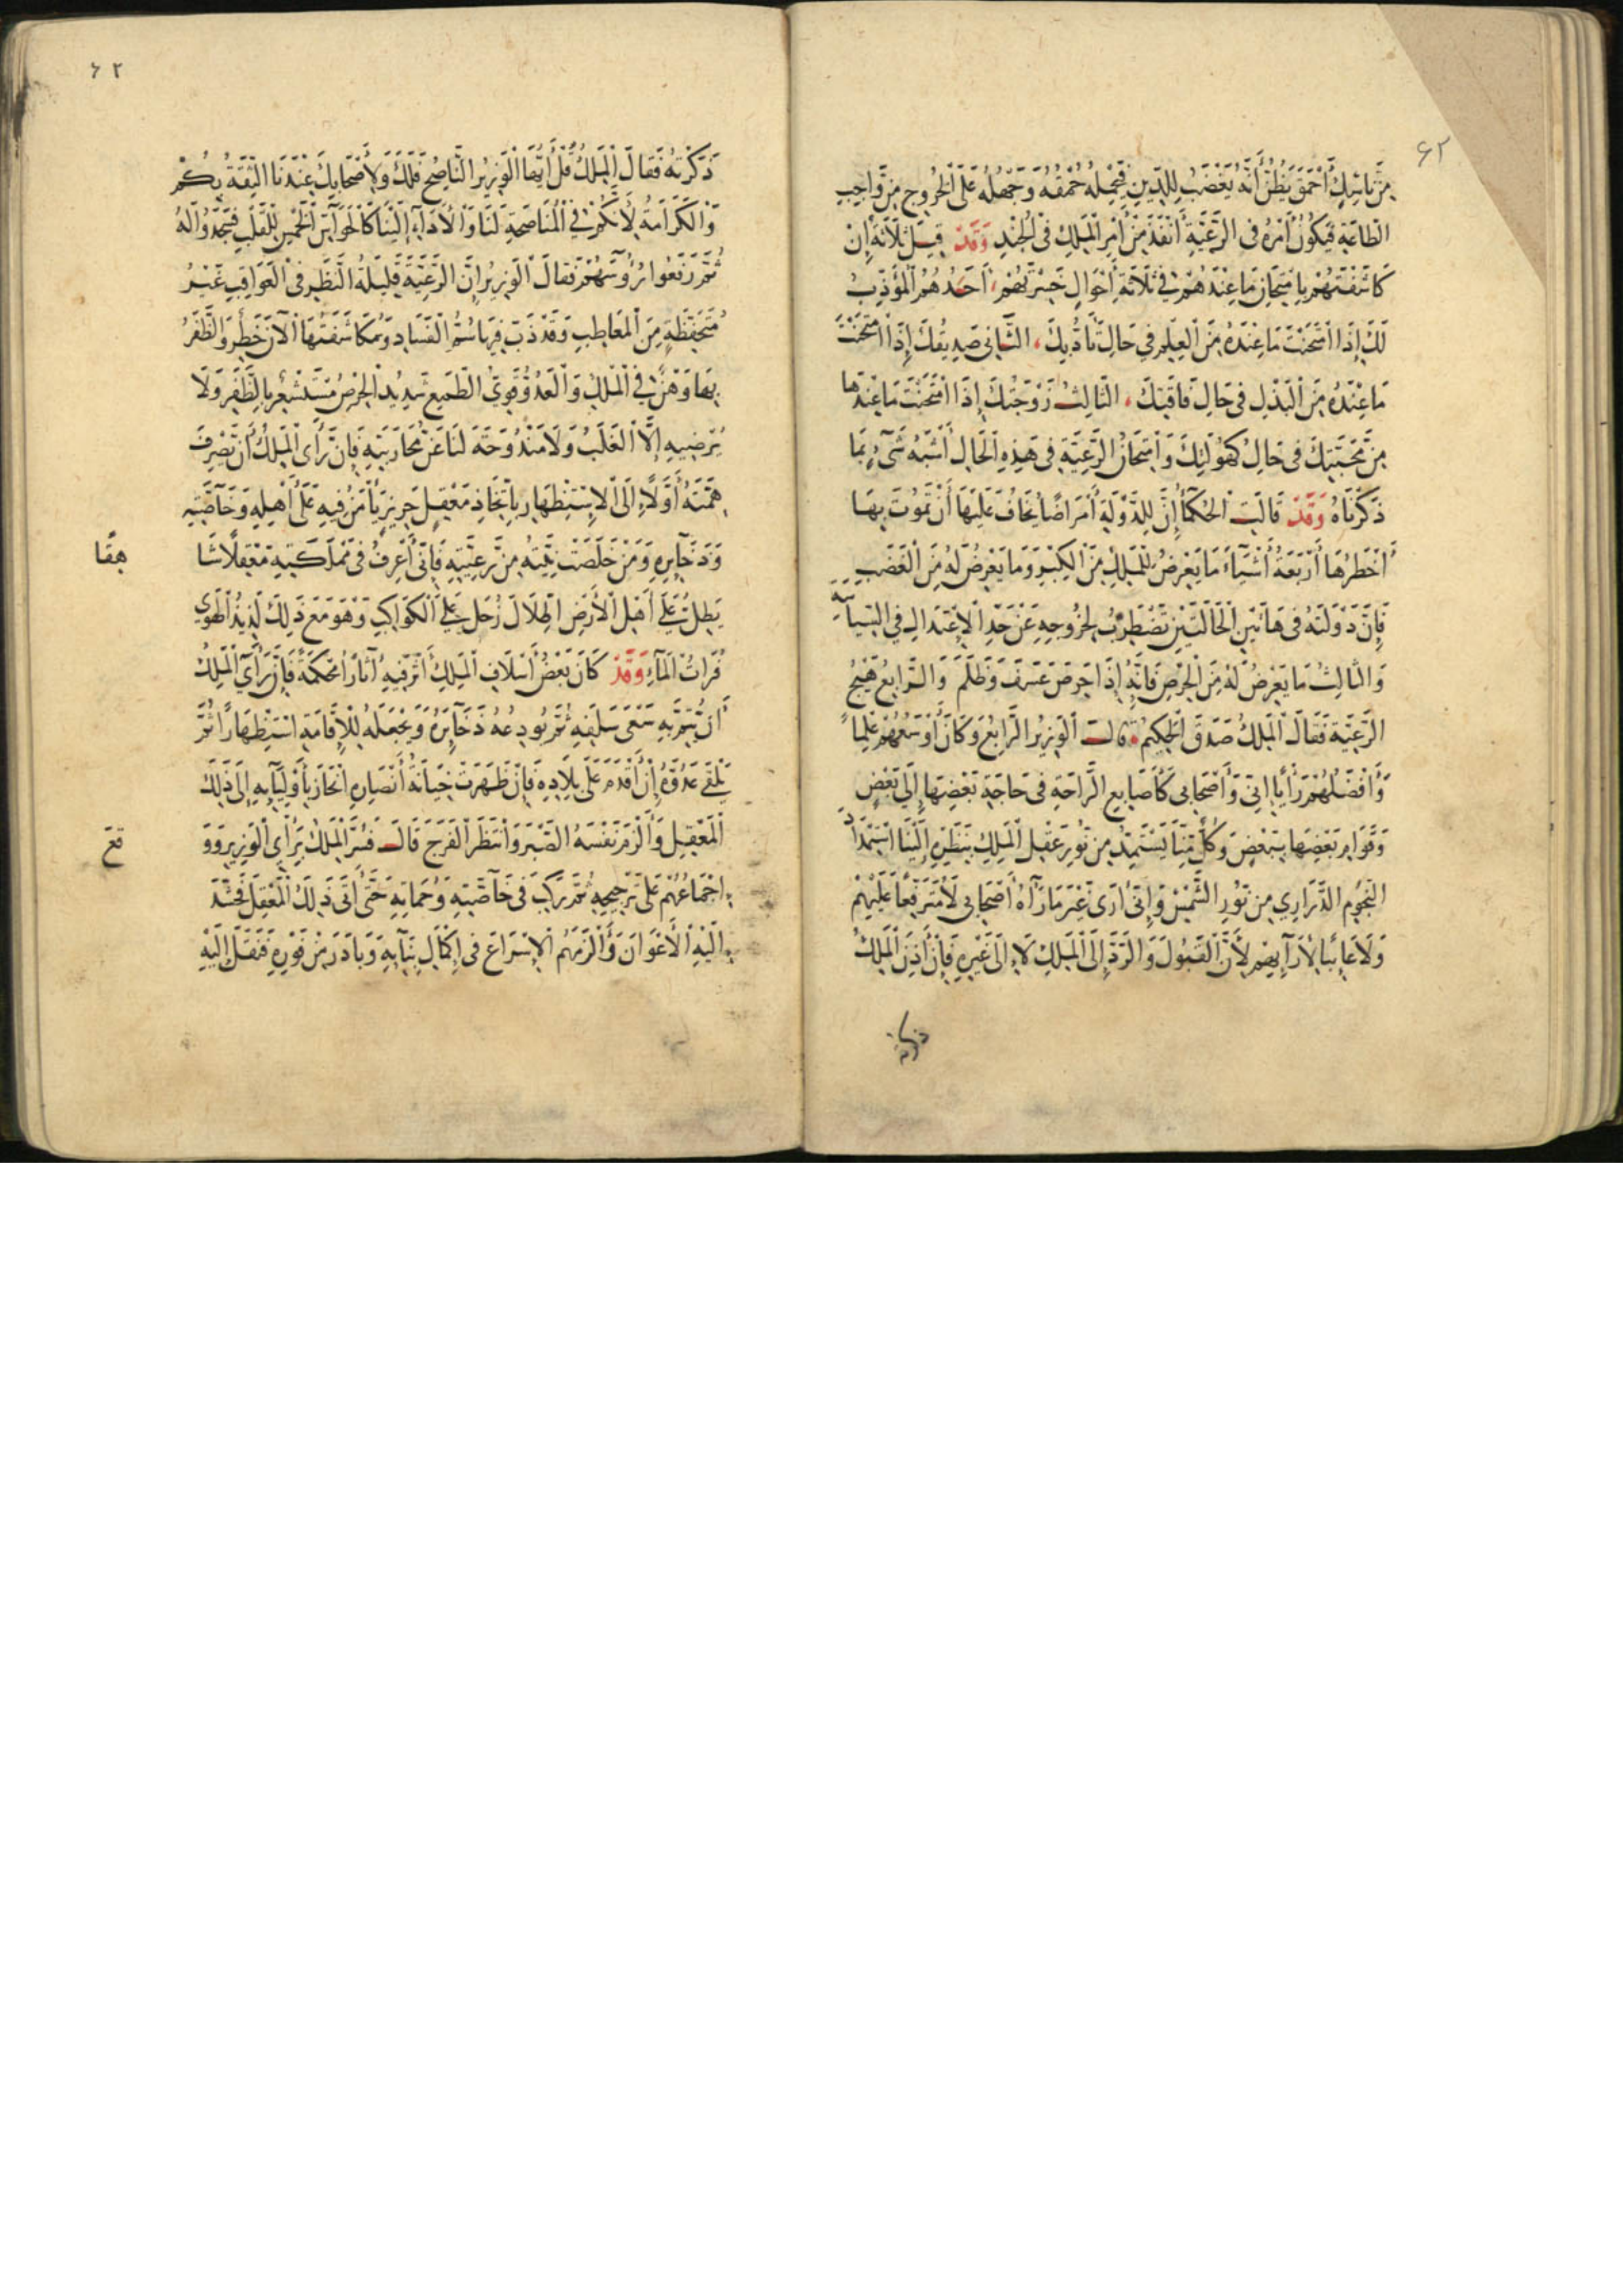 ٤٢
مِنْ نَاسِكٍ أَحْمَقَ يَظُنُّ أَنَّهُ يَغْضَبُ لِلدِّينِ فَيَحْمِلُهُ حُمْقُهُ وَجَهْلُهُ عَلَى الْخُرُوجِ مِنْ وَاجِبِ
الطَّاعَةِ فَيَكُونُ أَمْرُهُ فِى الرَّعِيَّةِ أَنْفَذَ مِنْ أَمْرِ الْمَلِكِ فِى الْجُنْدِ وَقَدْ قِيلَ ثَلَاثَةٌ إِنْ
كَاشَفْتَهُمْ بِامْتِحَانِ مَا عِنْدَهُمْ فِى ثَلَاثَةِ أَحْوَالٍ خَسِرْتَهُمْ، أَحَدُهُمُ الْمُؤَدِّبُ
لَكَ إِذَا امْتَحَنْتَ مَا عِنْدَهُ مِنَ الْعِلْمِ فِى حَالِ تَأَدُّبِكَ، الثَّانِى صَدِيقُكَ إِذَا امْتَحَنْتَ
مَا عِنْدَهُ مِنَ الْبَذْلِ فِى حَالِ فَاقَتِكَ، الثَّالِثُ زَوْجَتُكَ إِذَا امْتَحَنْتَ مَا عِنْدَهَا
مِنْ مَحَبَّتِكَ فِى حَالِ كُهُولَتِكَ وَامْتِحَانُ الرَّعِيَّةِ فِى هَذِهِ الْحَالِ أَشْبَهُ شَىْءٍ بِمَا
ذَكَرْنَاهُ وَقَدْ قَالَتِ الْحُكَمَاءُ إِنَّ لِلدَّوْلَةِ أَمْرَاضًا يُخَافُ عَلَيْهَا أَنْ تَمُوتَ بِهَا
أَخْطَرُهَا أَرْبَعَةُ أَشْيَاءَ مَا يَعْرِضُ لِلْمَلِكِ مِنَ الْكِبْرِ وَمَا يَعْرِضُ لَهُ مِنَ الْغَضَبِ
فَإِنَّ دَوْلَتَهُ فِى هَاتَيْنِ الْحَالَتَيْنِ تَضْطَرِبُ لِخُرُوجِهِ عَنْ حَدِّ الْاِعْتِدَالِ فِى السِّيَاسَةِ
وَالثَّالِثُ مَا يَعْرِضُ لَهُ مِنَ الْحِرْصِ فَإِنَّهُ إِذَا حَرَصَ عَسَفَ وَظَلَمَ وَالرَّابِعُ هَيْجُ
الرَّعِيَّةِ فَقَالَ الْمَلِكُ صَدَقَ الْحَكِيمُ، قَالَتْ الْوَزِيرُ الرَّابِعُ وَكَانَ أَوْسَعُهُمْ عِلْمًا
وَأَفْضَلُهُمْ رَأْيًا إِنِّى وَأَصْحَابِى كَأَصَابِعِ الرَّاحَةِ فِى حَاجَةِ بَعْضِهَا إِلَى بَعْضٍ
وَقَوَامِ بَعْضِهَا بِبَعْضٍ وَكُلٌّ مِنَّا يَسْتَمِدُّ مِنْ نُورِ عَقْلِ الْمَلِكِ بِنَظَرِهِ إِلَيْنَا اسْتِمْدَادَ
النُّجُومِ الدَّرَارِي مِنْ نُورِ الشَّمْسِ وَإِنِّى أَرَى غَيْرَ مَا رَآهُ أَصْحَابِى لَا مُتَرَفِّعًا عَلَيْهِمْ
وَلَا عَائِبًا لِآرَائِهِمْ لِأَنَّ الْقَبُولَ وَالرَّدَّ إِلَى الْمَلِكِ لَا إِلَى غَيْرِهِ فَإِنْ أَذِنَ الْمَلِكُ
ذكرته
٤٢
ذَكَرْتُهُ فَقَالَ الْمَلِكُ قُلْ أَيُّهَا الْوَزِيرُ النَّاصِحُ فَلَكَ وَلِأَصْحَابِكَ عِنْدَنَا الثِّقَةُ بِكُمْ
وَالْكَرَامَةُ لِأَنَّكُمْ فِى الْمُنَاصَحَةِ لَنَا وَالْأَدَاءِ إِلَيْنَا كَالْحَوَاسِّ الْخَمْسِ لِلْقَلْبِ فَسَجَدُوا لَهُ
ثُمَّ رَفَعُوا رُؤُسَهُمْ فَقَالَ الْوَزِيرُ إِنَّ الرَّعِيَّةَ قَلِيلَةُ النَّظَرِ فِى الْعَوَاقِبِ غَيْرُ
مُتَحَفِّظَةٍ مِنَ الْمَعَاطِبِ وَقَدْ دَبَّ فِيهَا سُمُّ الْفَسَادِ وَمُكَاشَفَتُهَا الْآنَ خَطَرٌ وَالظَّفَرُ
بِهَا وَهْنٌ فِى الْمُلْكِ وَالْعَدُوُّ قَوِىُّ الطَّمَعِ شَدِيدُ الْحِرْصِ مُسْتَشْعِرٌ بِالظَّفَرِ وَلَا
يُرْضِيهِ إِلَّا الْغَلَبُ وَلَا مَنْدُوحَةَ لَنَا عَنْ مُحَارَبَتِهِ فَإِنْ رَأَى الْمَلِكُ أَنْ تَصْرِفَ
هِمَّتَهُ أَوَّلًا إِلَى الْاِسْتِظْهَارِ بِاتِّخَاذِ مَعْقِلٍ حَرِيزٍ يَأْمَنُ فِيهِ عَلَى أَهْلِهِ وَخَاصَّتِهِ
وَذَخَائِرِهِ وَمَنْ خَلَصَتْ نِيَّتُهُ مِنْ رَعِيَّتِهِ فَإِنِّى أَعْرِفُ فِى مَمْلَكَتِهِ مَعْقِلًا شَا
هِقًا
يَطِلُّ عَلَى أَهْلِ الْأَرْضِ إِطْلَالَ زُحَلَ عَلَى الْكَوَاكِبِ وَهُوَ مَعَ ذَلِكَ لَذِيذُ الْهَوَى
فُرَاتُ الْمَاءِ وَقَدْ كَانَ بَعْضُ أَسْلَافِ الْمَلِكِ أَثَّرَ فِيهِ آثَارًا مُحْكَمَةً فَإِنْ رَأَى الْمَلِكُ
أَنْ يُتِمَّ بِهِ سَعْىَ سَلَفِهِ ثُمَّ يُودِعُهُ ذَخَائِرَهُ وَيَجْعَلَهُ لِلْإِقَامَةِ اسْتِظْهَارًا ثُمَّ
يَلْقَى عَدُوَّهُ إِنْ أَقْدَمَ عَلَى بِلَادِهِ فَإِنْ ظَهَرَتْ خِيَانَةُ أَنْصَارِهِ انْحَازَ بِأَوْلِيَائِهِ إِلَى ذَلِكَ
الْمَعْقِلِ وَأَلْزَمَ نَفْسَهُ الصَّبْرَ وَانْتَظَرَ الْفَرَجَ قَالَ فَسُرَّ الْمَلِكُ بِرَأْىِ الْوَزِيرِ وَوَ
قَعَ
اجْمَاعُهُمْ عَلَى تَرْجِيحِهِ ثُمَّ رَكِبَ فِى خَاصَّتِهِ وَحُمَاتِهِ حَتَّى أَتَى ذَلِكَ الْمَعْقِلَ فَحَشَدَ
إِلَيْهِ الْأَعْوَانَ وَأَلْزَمَهُمُ الْإِسْرَاعَ فِى إِكْمَالِ بِنَائِهِ وَبَادَرَ مِنْ فَوْرِهِ فَنَقَلَ إِلَيْهِ